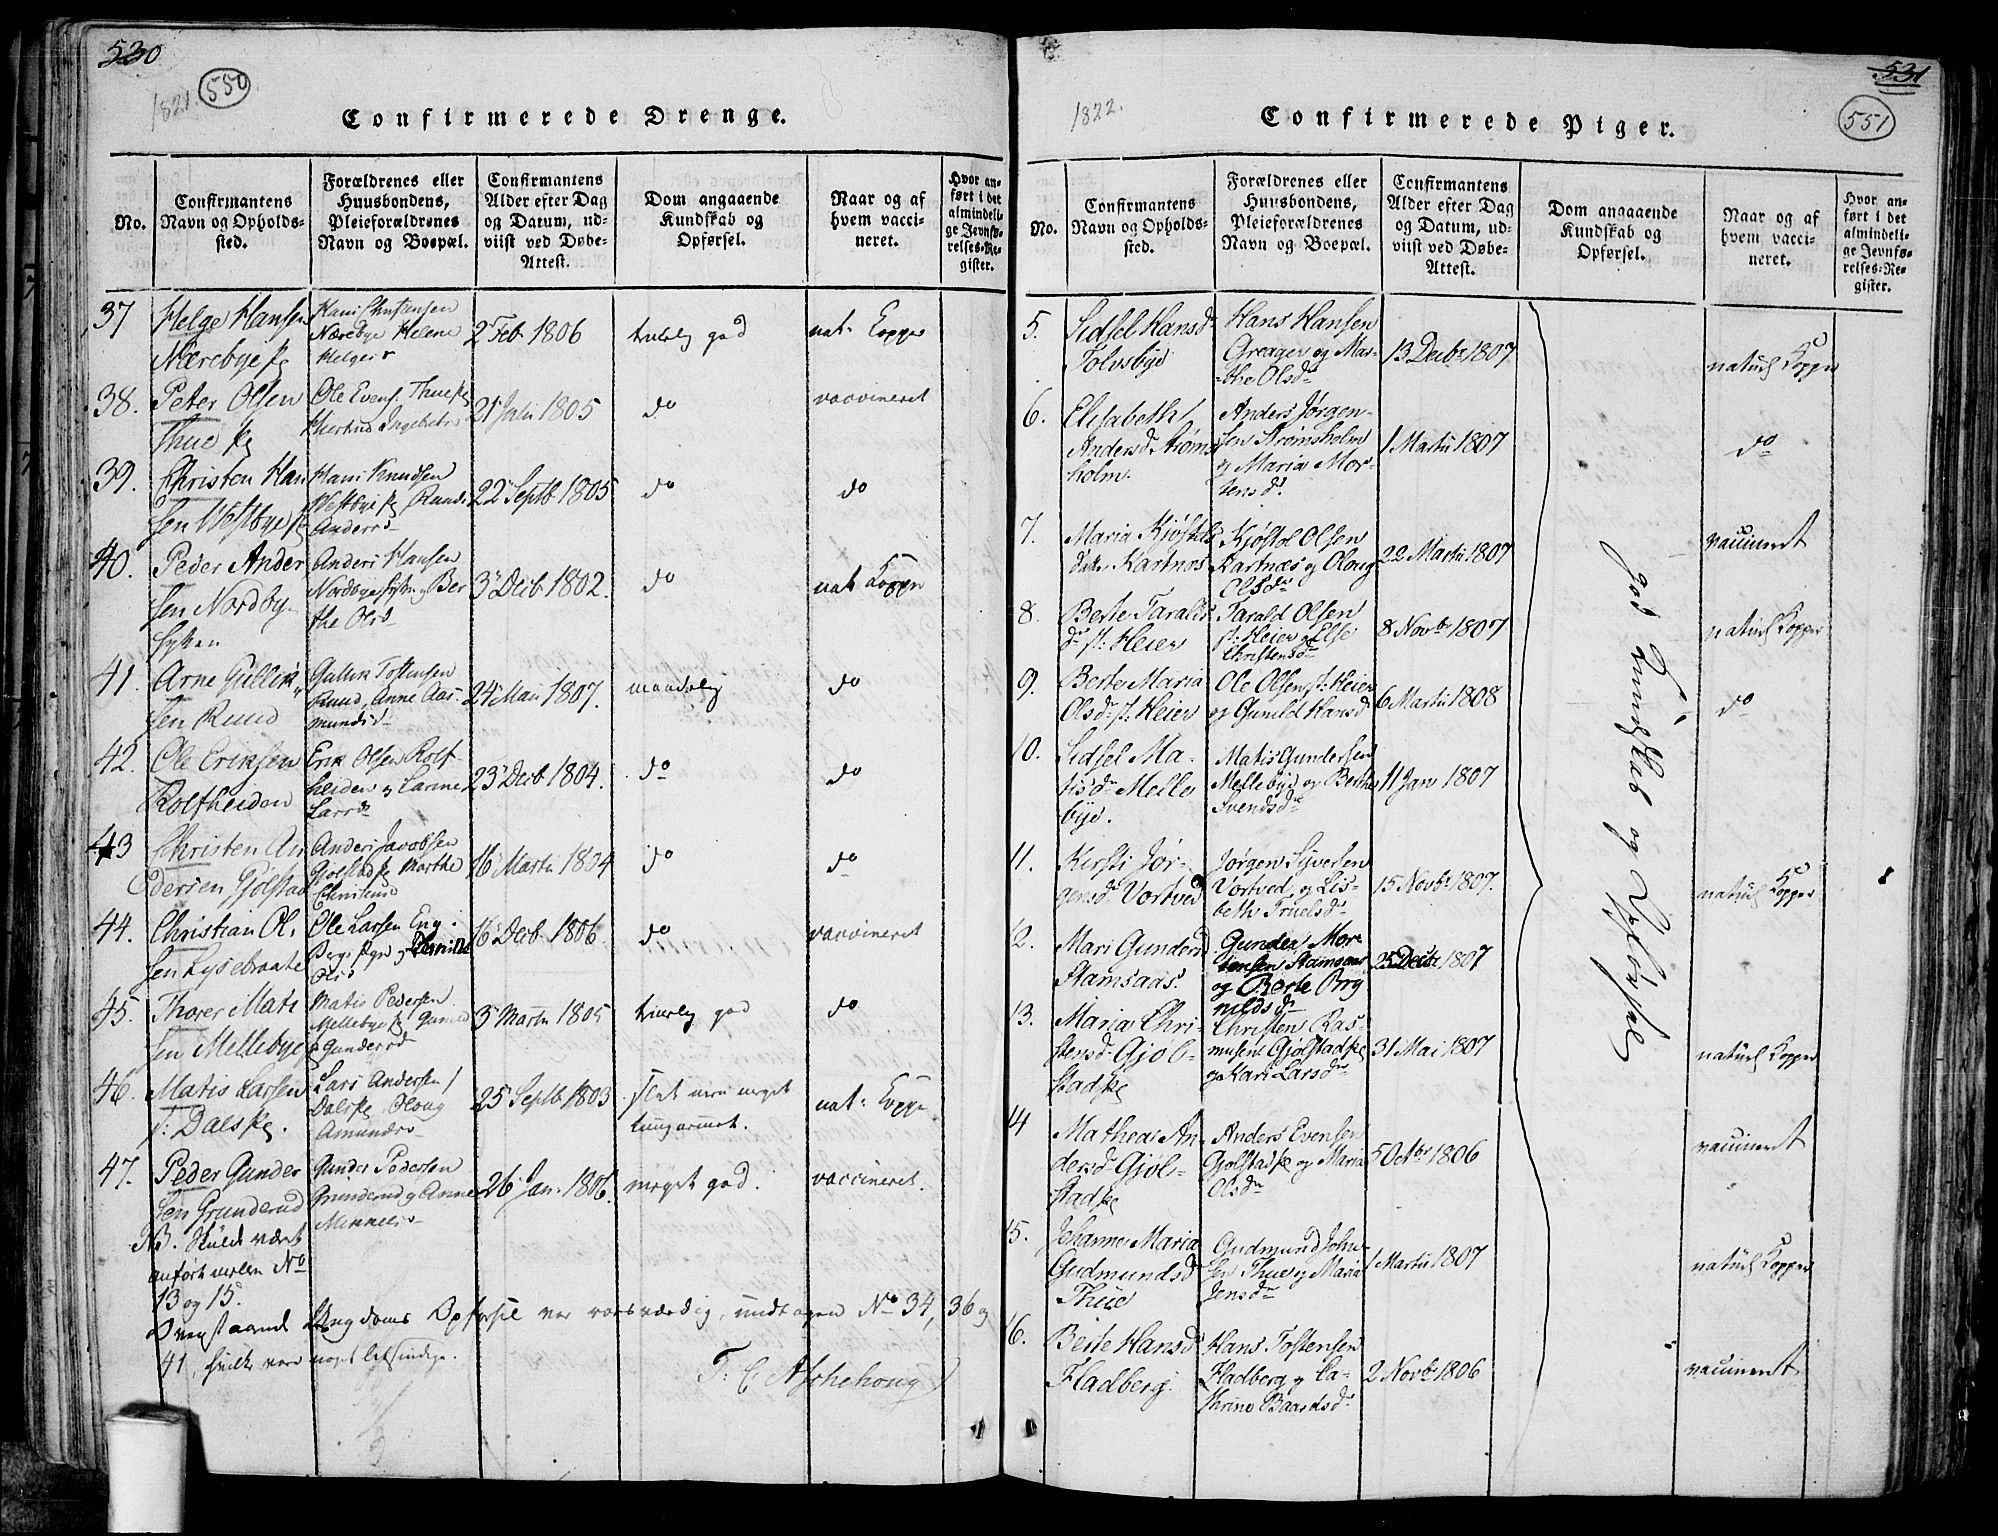 530
550
1821.
Confirmerede Drenge.
No.
Confirmantens
Navn og Opholds-
sted.
Forældrenes eller
Huusbondens,
Pleieforældrenes
Navn og Boepæl.
Confirmantens
Alder efter Dag
og Datum, ud-
viist ved Døbe-
Attest.
Dom angaaende
Kundskab og
Opførsel.
Naar og af
hvem vacci-
neret.
Hvor an-
ført i det
almindeli-
ge Jevnfø-
relses-Re-
gister.
37
Helge Hansen
Nærebye
Hans Christensen
Nærebye Helene
Helges
2 Feb 1806
god
nat: Kopper
38.
Peter Olsen
Thue
Ole Evens. Thue
Ingebrets
21 Juli 1805
do
vaccineret
39.
Christen Han
sen Westbye
Hans Knudsen
Westbye Rand
Anders
22 Septb 1805
do
do
40.
Peder Ander
sen Nordby
Anders Hansen
Ber
the Olsd
3 Decb 1802.
do
nat Kopper
41.
Arne Gullik
sen Ruud
Gullik Tostensen
Ruud, Anne Aas-
munds
24 Mai 1807.
maadelig
do
42.
Ole Eriksen
Roltheiden
Erik Olsen Rolt
heiden
Larsd
23 Decb 1804.
do
do
43
Christen An
dersen Gjølstad
Anders Jacobsen
Gjølstad Marthe
16 Martii 1804
do
do
44.
Christian Ol.
sen Lysebraate
Ole Larsen Eng
Ols
16 Decb 1806.
do
vaccineret
45.
Thorer Mati
sen Mellebye
Matis Pedersen
Mellebye
Gundersd
3 Martii 1805
god
do
46.
Matis Larsen
Dalske.
Lars Andersen
Dalske Oloug
Amunds
25 Septb 1803
slet men meget
nat: Koppe
47.
Peder Gunder
sen Grunderud
Gunder Pedersen
Grunderud og Anne
26 Jan: 1806.
meget god.
vaccineret.
NB. Skulde været
anført mellem No
13 og 15.
Ovenstaaende Ungdoms Opførsel var roesværdig, undtagen No 34, 36 og
41, hvilke vare noget letsindige.
T: C Aschehoug
531
551
1822.
Confirmerede Piger.
No.
Confirmantens
Navn og Opholds-
sted.
Forældrenes eller
Huusbondens,
Pleieforældrenes
Navn og Boepæl.
Confirmantens
Alder efter Dag
og Datum, ud-
viist ved Døbe-
Attest.
Dom angaaende
Kundskab og
Opførsel.
Naar og af
hvem vacci-
neret.
Hvor an-
ført i det
almindeli-
ge Jevnfø-
relses-Re-
gister.
god Kundskab og Opførsel
5.
Sidsel Hansd
Tolvsbye
Hans Hansen
Greager og Mar-
the Olsd
13 Decbr 1807
naturl Kopper
6.
Elisabeth
Andersd Strøms
holm.
Anders Jørgen-
sen Strømsholm
og Maria Mor-
tensd.
1 Martii 1807
do
7.
Maria Kjøstels
datr Kartnos
Kjøstol Olsen
Kartnæs og Oloug
Olsdr
22 Martii 1807
vaccineret
8.
Berte Taralds
dr Heier
Tarald Olsen
Heier og Else
Christensdr
8 Novbr 1807
naturl Kopper
9.
Berte Maria
Olsdr Heier
Ole Olsen Heier
og Gunild Hansd
6 Martii 1808
do
10.
Sidsel Ma-
tisdr Melle
bye.
Matis Gundersen
Mellebye og Berthe
Svendsdr
11 Jan 1807
11.
Kersti Jør-
gensdr Vortved
Jørgen Syversen
Vortved, og Lis-
beth Truelsdr
15 Novbr 1807.
naturl Kopper
12.
Mari Gundersd
Stamsaas.
Gunder Mor-
tensen Stamsaas
og Berte Bryn
nildsdr
25 Decbr 1807
13.
Maria Chri-
stensdr Gjøl-
stad
Christen Ras-
musen Gjølstad
og Kari Larsdr
31 Mai 1807
naturl Kopper
14
Mathea An-
dersdr Gjøl-
stad
Anders Evensen
Gjølstad og Maria
Olsdr
5 Octbr 1806
vaccineret
15.
Johanne Maria
Gudmundsd
Thue
Gudmund John-
sen Thue og Maria
Jensdr
1 Martii 1807
naturl Kopper
16.
Berte Hansd
Fladberg.
Hans Tostensen
Fladberg og Ca-
thrine Baardsdr
2 Novbr 1806
vaccineret